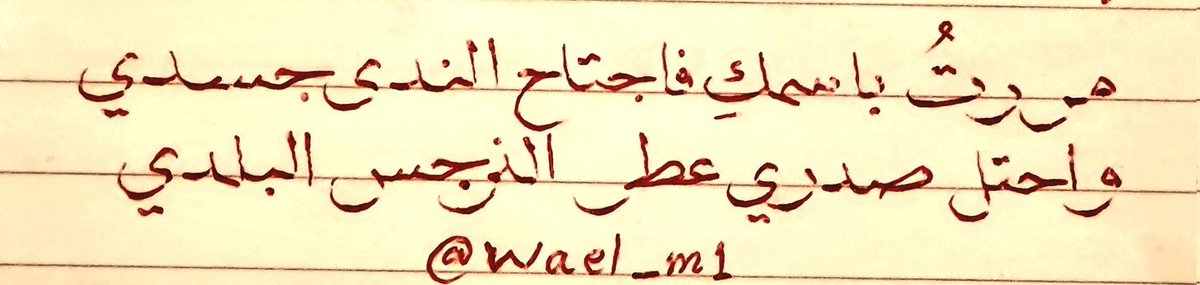 مررتُ باسمكِ فاجتاح الندى جسدي
واحتل صدري عطر النرجس البلدي
@wael_m1